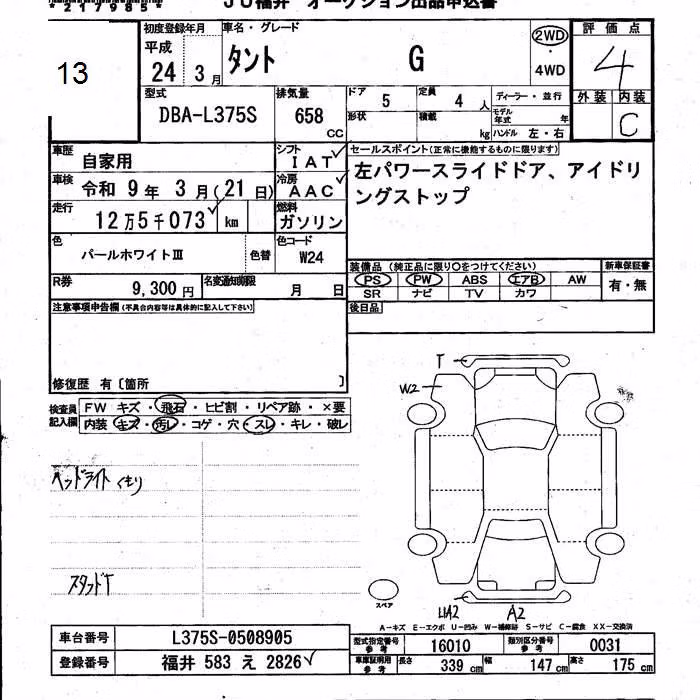 *217985*
JU福井 オークション出品申込書
13
初度登録年月 車名・グレード 評価点
平成 24 3月 タント G 2WD・4WD 4
外装 内装
C
型式 排気量 ドア 定員 ディーラー・並行
DBA-L375S 658 CC 5 4人
形状 積載 kg モデル年式 年
ハンドル 左・右
車歴 自家用 シフト IAT
車検 令和 9年 3月(21日) 冷房 AAC
走行 12万5千073 km 燃料 ガソリン
色 パールホワイトIII 色替 色コード W24
R券 9,300円 名変通知期限 月 日
セールスポイント(正常に機能するものに限ります)
左パワースライドドア、アイドリ
ングストップ
装備品(純正品に限り○をつけてください) 新車保証書
PS PW ABS エアB AW 有・無
SR ナビ TV カワ
後日品
注意事項申告欄(不具合内容等は具体的に記入して下さい)
修復歴 有〔箇所 〕
検査員記入欄
FW キズ・飛石・ヒビ割・リペア跡・×要
内装 キズ・汚レ・コゲ・穴・スレ・キレ・破レ
ヘッドライトくもり
スタッドT
T
W2
UA2 A2
スペア
A-キズ E-エクボ U-凹み W-補修跡 S-サビ C-腐食 XX-交換済
車台番号 L375S-0508905
登録番号 福井 583 え 2826
型式指定番号 参考 16010 類別区分番号 参考 0031
車庫証明用 参考 長さ 339cm 幅 147cm 高さ 175cm